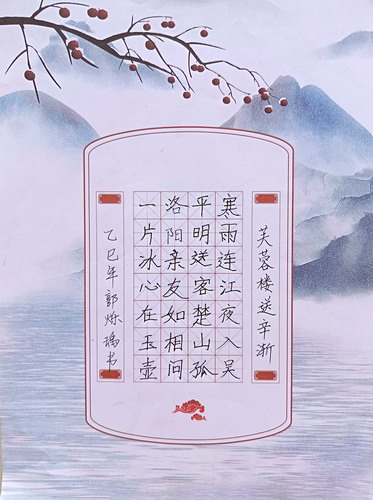 芙蓉楼送辛渐
寒雨连江夜入吴
平明送客楚山孤
洛阳亲友如相问
一片冰心在玉壶
乙巳年郭烁瑀书